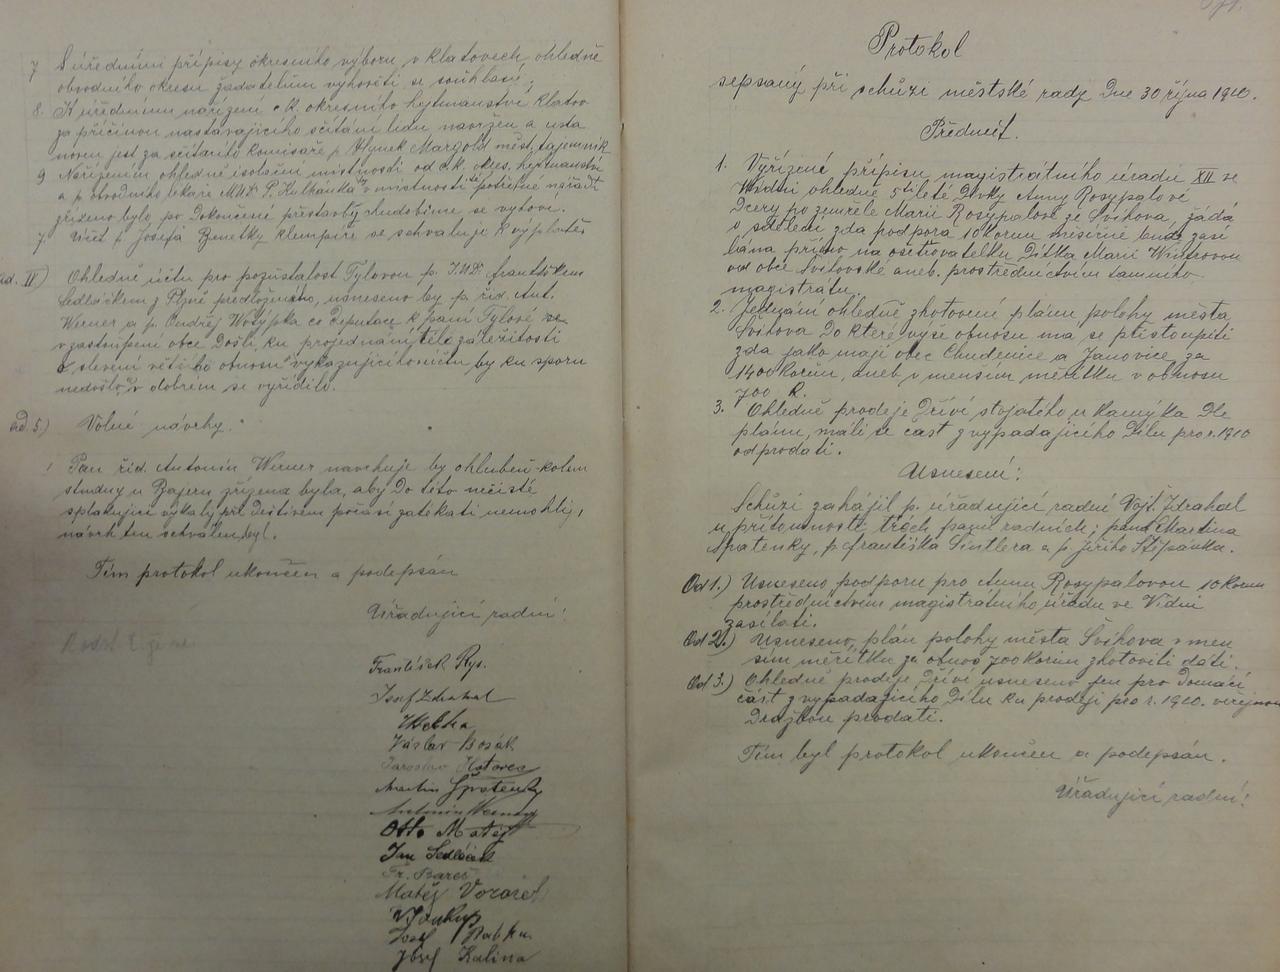 7 S úředními přípisy okresního výboru v Klatovech ohledně
obvodního okresu žadatelům vyhověti se souhlasí.
8. K úřednímu nařízení c.k. okresního hejtmanství Klatov
za příčinou nastávajícího sčítání lidu navržen a usta
noven jest za sčítacího komisaře p. Hynek Margold měst. tajemník
9 Nařízením ohledně isolační místnosti od c.k. okres. hejtmanství
a p. obvodního lékaře MUDr. P. místnosti potřebné nářadí
zřízeno bylo po dokončené přestavby chudobince se vyhoví.
7. Účet p. Josefa Benetky klempíře se schvaluje k výplatě
ad. IV) Ohledně účtu pro pozůstalost Tylovou p. J.U.Dr. Františkem
Sedláčkem z Plzně předloženého, usneseno by p. řid. Ant.
Werner a p. Ondřej Wotýpka co deputace k paní Tylové se
v zastoupení obce došli, ku projednání této záležitosti
o slevení většího obnosu vykazujícího účtu by ku sporu
nedošlo, v dobrém se vyřídilo.
ad. 5) Volné návrhy.
1 Pan řid. Antonín Werner navrhuje by ohlubeň kolem
studny u Bajeru zřízena byla, aby do této nečisté
splakující výkaly při deštivém počasí zatékati nemohly,
návrh ten schválen byl.
Tím protokol ukončen a podepsán
Úřadující radní:
František Rys.
Josef Zdrahal
Václav Bosák
Jaroslav
Martin Špatenky
Antonín Werner
Otto Matějí
Jan Sedláček
Fr. Bareš
Matěj
V. Soukup
Josef
Josef Kalina
Protokol
sepsaný při schůzi městské rady dne 30 října 1910.
Předmět.
1. Vyřízené přípisu magistrátního úřadu XII ve
Vídni ohledně 5ti leté dívky Anny Rosypalové
dcery po zemřelé Marii Rosypalové ze Švihova, žádá
o sdělení zda podpora 10 korun měsíčně bude zasí
lána přímo na ošetřovatelku dítka Marii Wintrovou
od obce Švihovské aneb prostřednictvím tamního
magistrátu.
2. Jednání ohledně zhotovení plánu polohy města
Švihova do které výše obnosu má se přistoupiti
zda jako mají obec Chudenice a Janovice, za
1400 korun, aneb v menším měřítku v obnosu
700 K.
3. Ohledně prodeje dříví stojatého u Kamýka dle
plánu, máli se část z vypadajícího dílu pro r. 1910
odprodati.
Usnesení:
Schůzi zahájil p. úřadující radní Vojt. Zdrahal
u přítomnosti třech panů radních; pana Martina
Špatenky, p. Františka Šintlera a p. Jiřího Štěpánka.
Od 1.) Usneseno podporu pro Annu Rosypalovou 10 korun
prostřednictvím magistrátního úřadu ve Vídni
zasílati.
Od 2.) Usneseno, plán polohy města Švihova v men
ším měřítku za obnos 700 korun zhotoviti dáti.
Od 3.) Ohledně prodeje dříví usneseno jen pro domácí
část z vypadajícího dílu ku prodeji pro r. 1910. veřejnou
dražbou prodati.
Tím byl protokol ukončen a podepsán.
Úřadující radní: